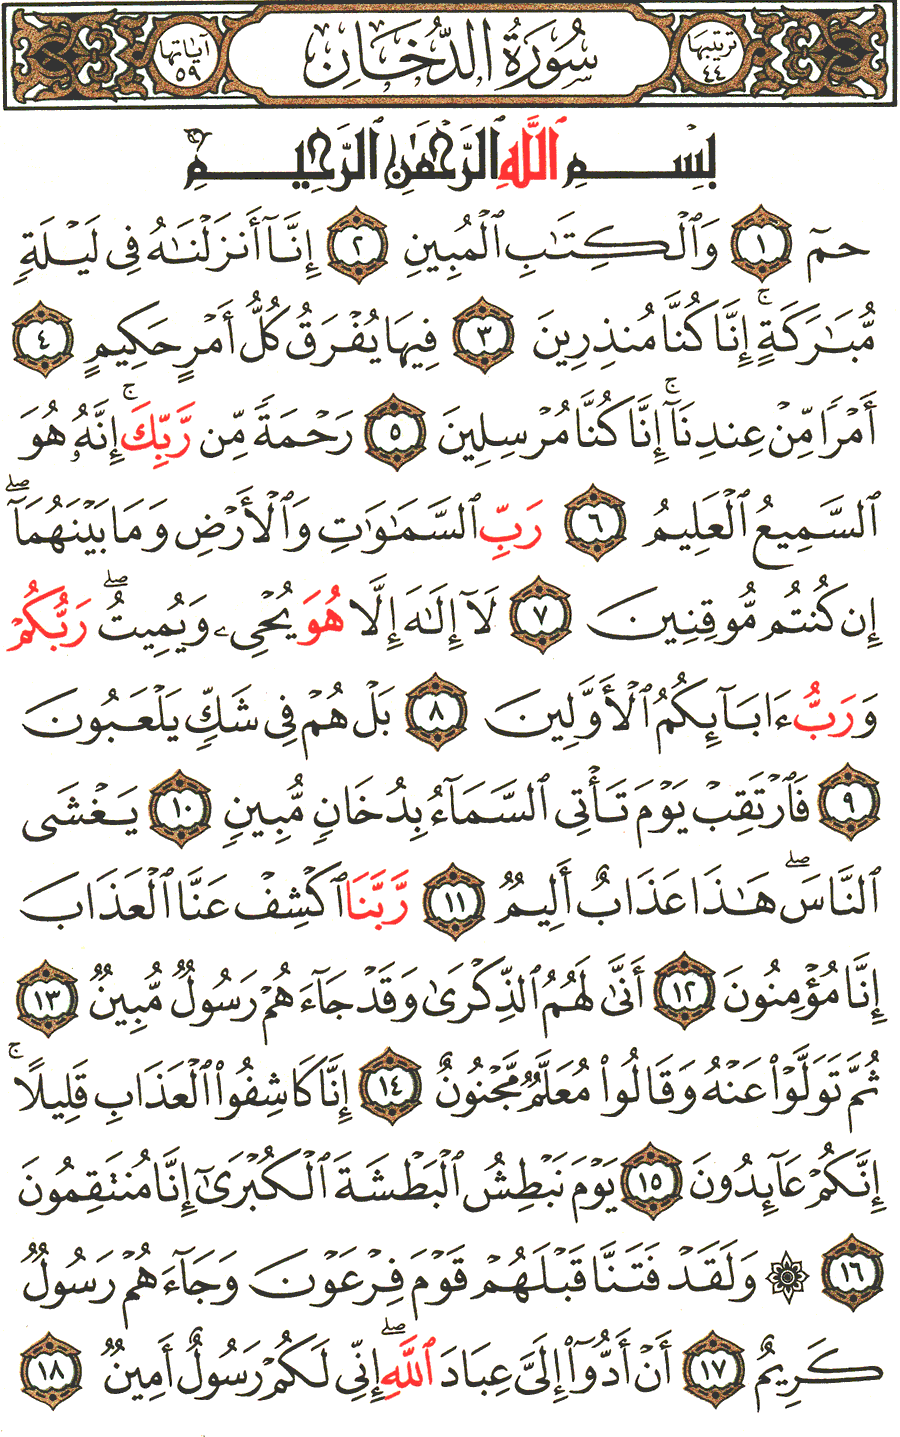 ترتيبها ٤٤ سُورَةُ الدُّخَانِ آيَاتها ٥٩
بِسْمِ ٱللَّهِ ٱلرَّحْمَٰنِ ٱلرَّحِيمِ
حمٓ ١ وَٱلْكِتَٰبِ ٱلْمُبِينِ ٢ إِنَّآ أَنزَلْنَٰهُ فِى لَيْلَةٍ
مُّبَٰرَكَةٍ ۚ إِنَّا كُنَّا مُنذِرِينَ ٣ فِيهَا يُفْرَقُ كُلُّ أَمْرٍ حَكِيمٍ ٤
أَمْرًا مِّنْ عِندِنَآ ۚ إِنَّا كُنَّا مُرْسِلِينَ ٥ رَحْمَةً مِّن رَّبِّكَ ۚ إِنَّهُۥ هُوَ
ٱلسَّمِيعُ ٱلْعَلِيمُ ٦ رَبِّ ٱلسَّمَٰوَٰتِ وَٱلْأَرْضِ وَمَا بَيْنَهُمَآ ۖ
إِن كُنتُم مُّوقِنِينَ ٧ لَآ إِلَٰهَ إِلَّا هُوَ يُحْىِۦ وَيُمِيتُ ۖ رَبُّكُمْ
وَرَبُّ ءَابَآئِكُمُ ٱلْأَوَّلِينَ ٨ بَلْ هُمْ فِى شَكٍّ يَلْعَبُونَ
٩ فَٱرْتَقِبْ يَوْمَ تَأْتِى ٱلسَّمَآءُ بِدُخَانٍ مُّبِينٍ ١٠ يَغْشَى
ٱلنَّاسَ ۖ هَٰذَا عَذَابٌ أَلِيمٌ ١١ رَّبَّنَا ٱكْشِفْ عَنَّا ٱلْعَذَابَ
إِنَّا مُؤْمِنُونَ ١٢ أَنَّىٰ لَهُمُ ٱلذِّكْرَىٰ وَقَدْ جَآءَهُمْ رَسُولٌ مُّبِينٌ ١٣
ثُمَّ تَوَلَّوْا۟ عَنْهُ وَقَالُوا۟ مُعَلَّمٌ مَّجْنُونٌ ١٤ إِنَّا كَاشِفُوا۟ ٱلْعَذَابِ قَلِيلًا ۚ
إِنَّكُمْ عَآئِدُونَ ١٥ يَوْمَ نَبْطِشُ ٱلْبَطْشَةَ ٱلْكُبْرَىٰٓ إِنَّا مُنتَقِمُونَ
١٦ ۞ وَلَقَدْ فَتَنَّا قَبْلَهُمْ قَوْمَ فِرْعَوْنَ وَجَآءَهُمْ رَسُولٌ
كَرِيمٌ ١٧ أَنْ أَدُّوٓا۟ إِلَىَّ عِبَادَ ٱللَّهِ ۖ إِنِّى لَكُمْ رَسُولٌ أَمِينٌ ١٨